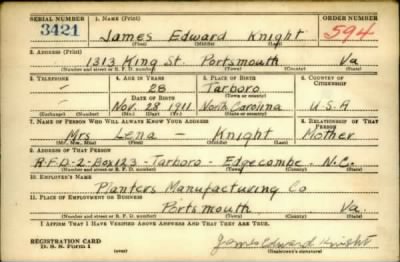 SERIAL NUMBER 1. NAME (Print) ORDER NUMBER
3421 James Edward Knight 594
(First) (Middle) (Last)
2. ADDRESS (Print)
1313 King St. Portsmouth Va
(Number and street or R. F. D. number) (Town) (County) (State)
3. TELEPHONE 4. AGE IN YEARS 5. PLACE OF BIRTH 6. COUNTRY OF CITIZENSHIP
- 28 Tarboro
DATE OF BIRTH (Town or county)
- Nov. 28 1911 North Carolina U.S.A
(Exchange) (Number) (Mo.) (Day) (Yr.) (State or country)
7. NAME OF PERSON WHO WILL ALWAYS KNOW YOUR ADDRESS 8. RELATIONSHIP OF THAT PERSON
Mrs Lena - Knight Mother
(Mr., Mrs., Miss) (First) (Middle) (Last)
9. ADDRESS OF THAT PERSON
R.F.D-2-Box123-Tarboro-Edgecombe. N.C.
(Number and street or R. F. D. number) (Town) (County) (State)
10. EMPLOYER'S NAME
Planters Manufacturing Co
11. PLACE OF EMPLOYMENT OR BUSINESS
Portsmouth Va.
(Number and street or R. F. D. number) (Town) (County) (State)
I AFFIRM THAT I HAVE VERIFIED ABOVE ANSWERS AND THAT THEY ARE TRUE.
REGISTRATION CARD
D. S. S. Form 1 (over) James Edward Knight
(Registrant's signature)